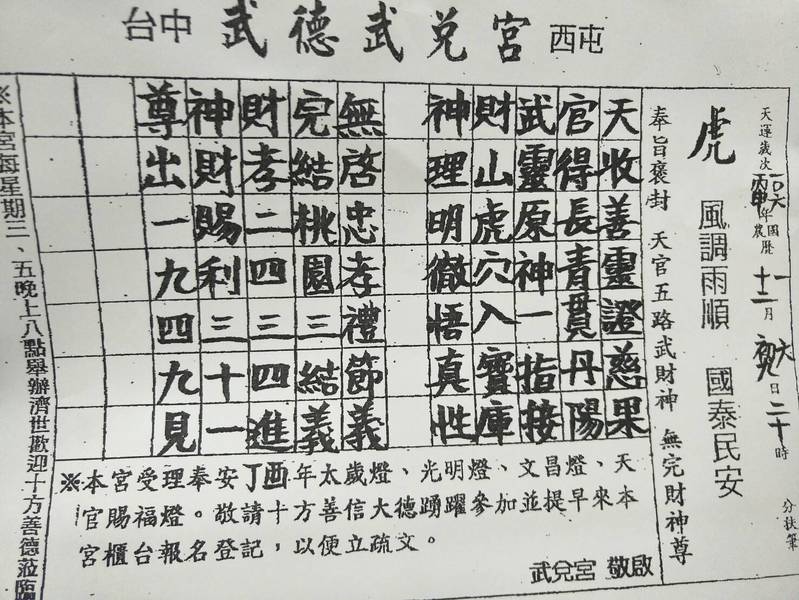 台中 武德武兌宮 西屯
天運歲次丙申年 國曆一〇六年一月六日 農曆十二月初九日二十時 分扶筆
虎 風調雨順 國泰民安
奉旨褒封 天官五路武財神 無完財神尊
天收善靈證慈果
官得長青貫丹陽
武靈原神一指接
財山虎穴入寶庫
神理明徹悟真性
無啓忠孝禮節義
完結桃園三結義
財孝二四三四進
神財賜利三十一
尊出一九四九見
※本宮受理奉安丁酉年太歲燈、光明燈、文昌燈、天
官賜福燈。敬請十方善信大德踴躍參加並提早來本
宮櫃台報名登記，以便立疏文。
武兌宮 敬啟
※本宮每星期三、五晚上八點舉辦濟世歡迎十方善德蒞臨